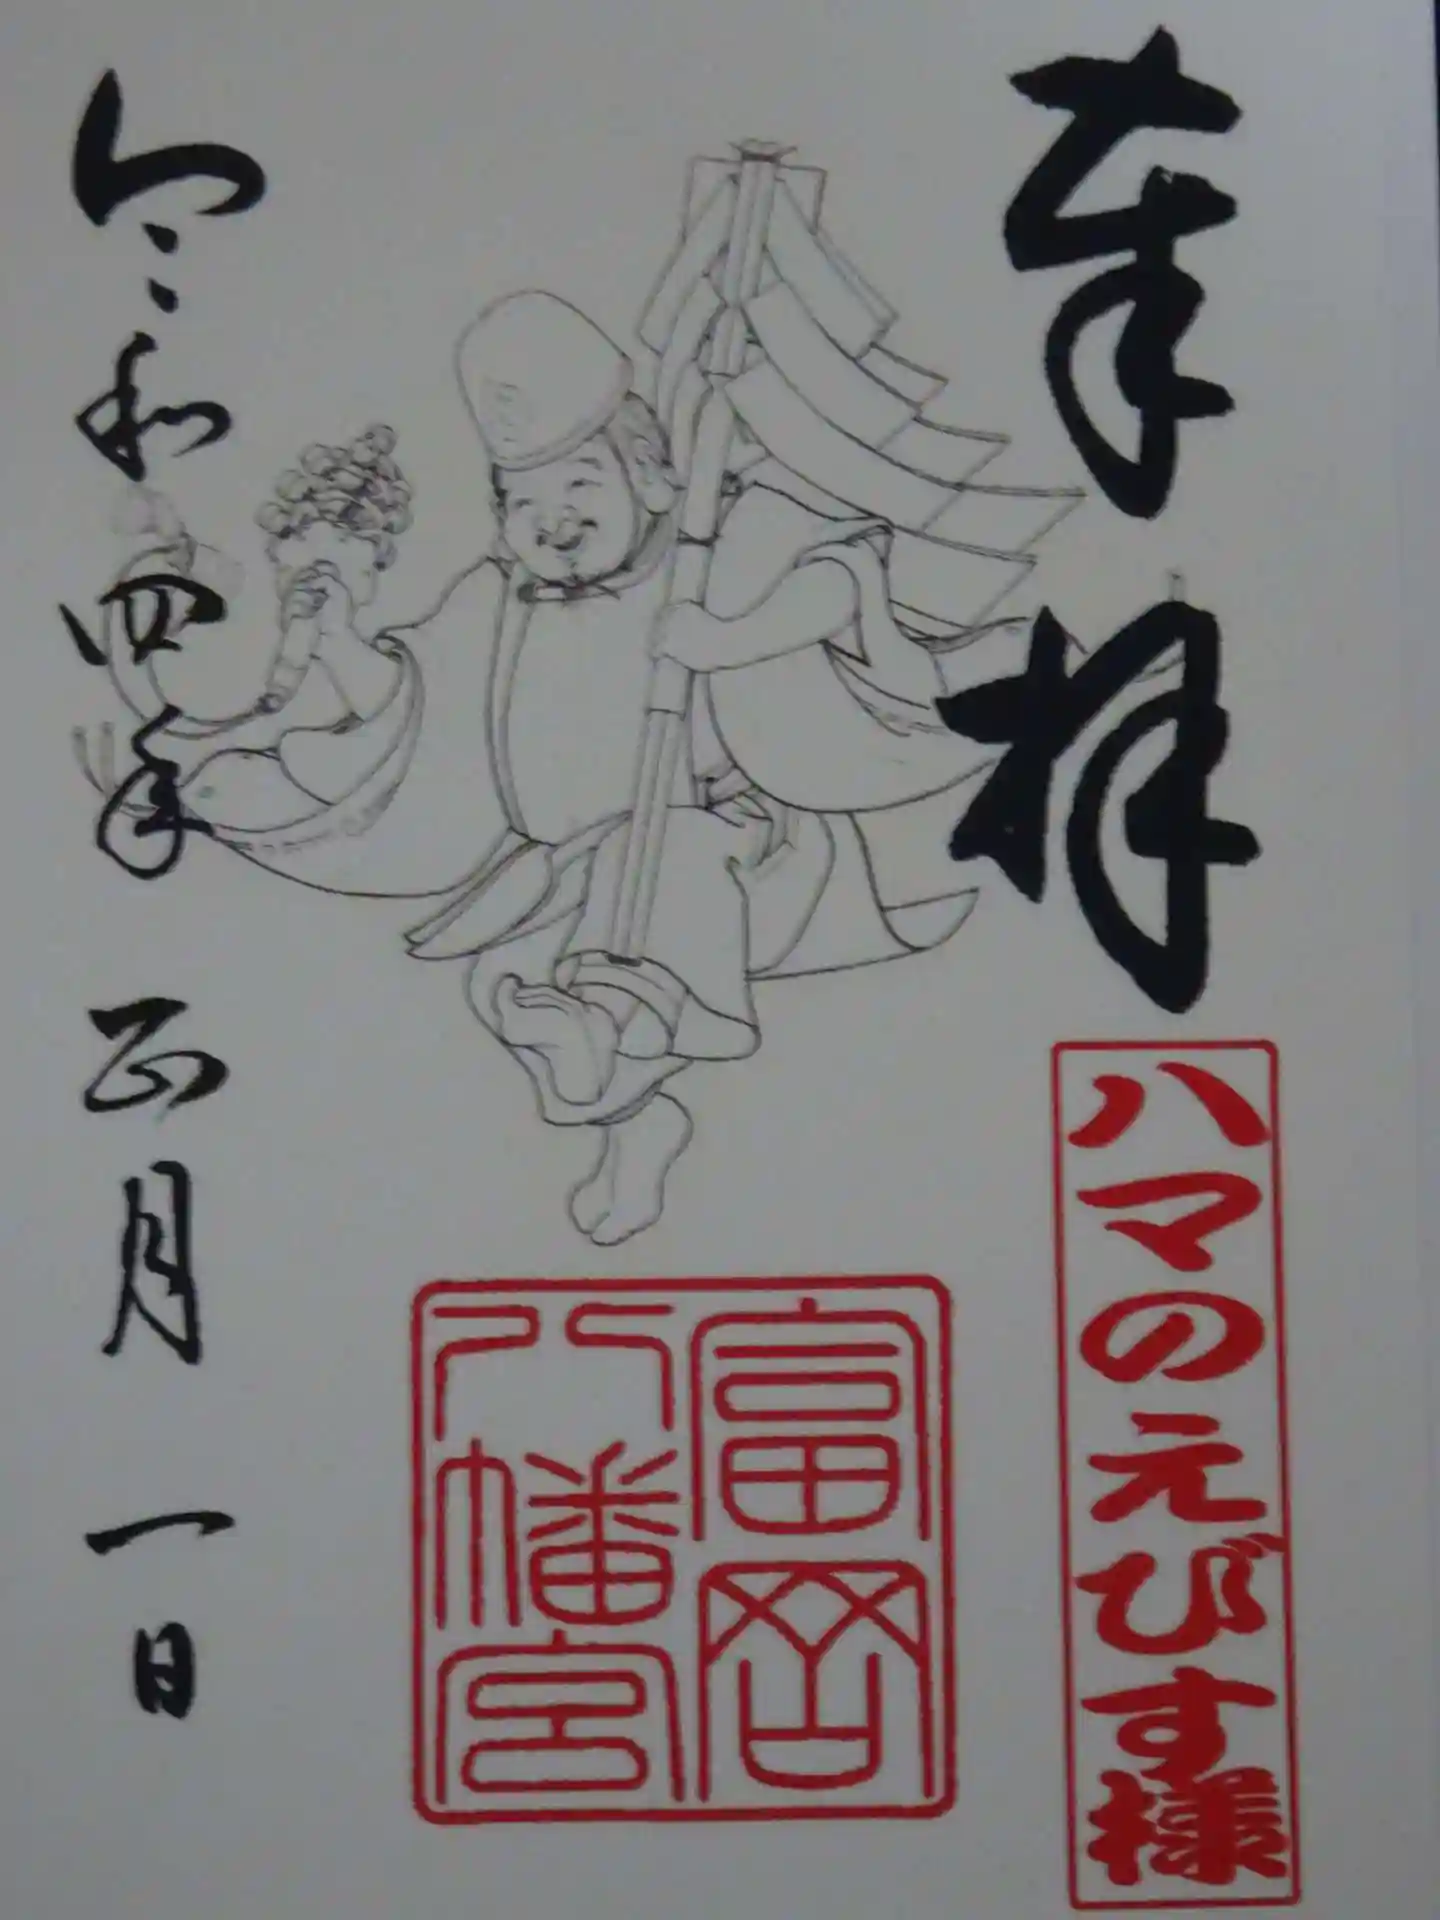 奉拝
ハマのえびす様
富岡
八幡宮
令和四年 正月 一日